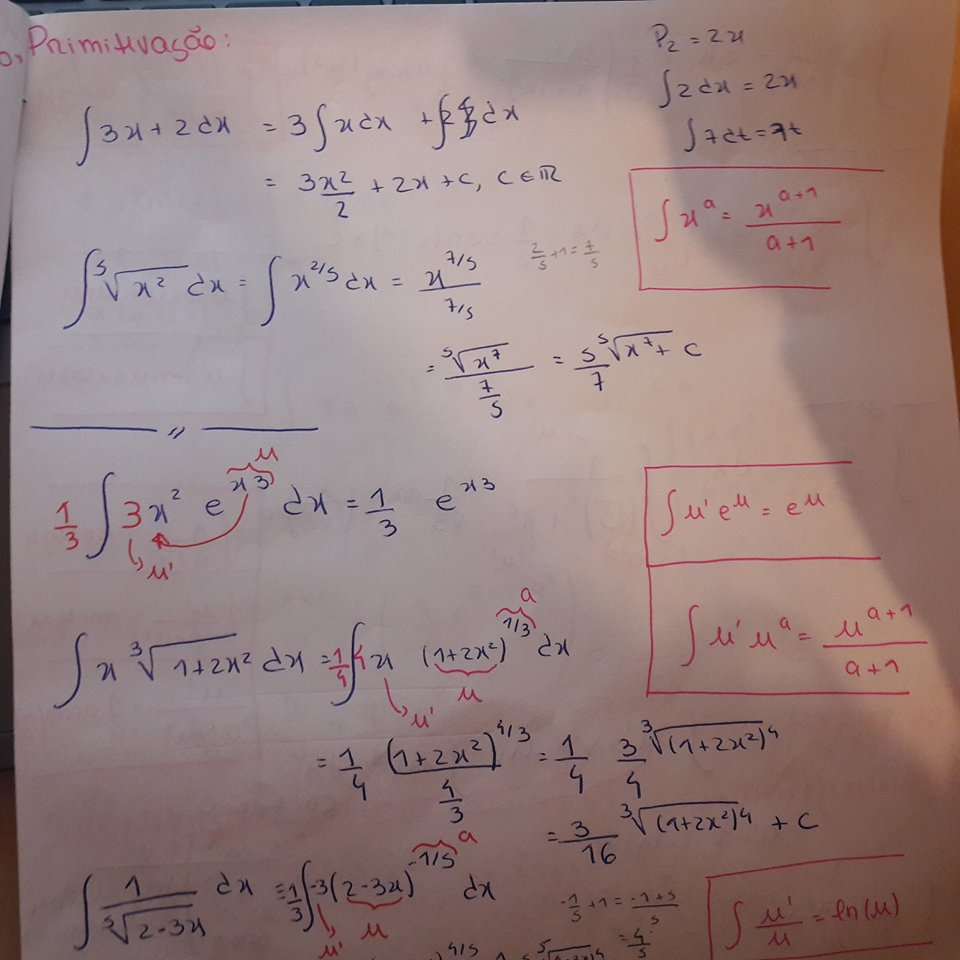 Primitivação:
P₂ = 2x
∫2dx = 2x
∫7dt = 7t
∫3x + 2dx = 3∫xdx + ∫2 dx
= 3x²/2 + 2x + c, c ∈ ℝ
∫x^a = x^(a+1)/(a+1)
2/5 + 1 = 7/5
∫⁵√(x²) dx = ∫x^(2/5) dx = x^(7/5)/(7/5)
= ⁵√(x⁷)/(7/5) = 5/7 ⁵√(x⁷) + c
〃
u
1/3 ∫3x² e^(x3) dx = 1/3 e^(x3)
u'
∫u' e^u = e^u
∫u' u^a = u^(a+1)/(a+1)
a
∫x ³√(1+2x²) dx = 1/4 ∫4x (1+2x²)^(1/3) dx
u' u
= 1/4 (1+2x²)^(4/3)/(4/3) = 1/4 3/4 ³√(1+2x²)⁴
= 3/16 ³√(1+2x²)⁴ + c
a
∫1/⁵√(2-3x) dx = 1/3 ∫-3(2-3x)^(-1/5) dx
u' u
-1/5 + 1 = (-1+5)/5
= 4/5
∫u'/u = ln(u)